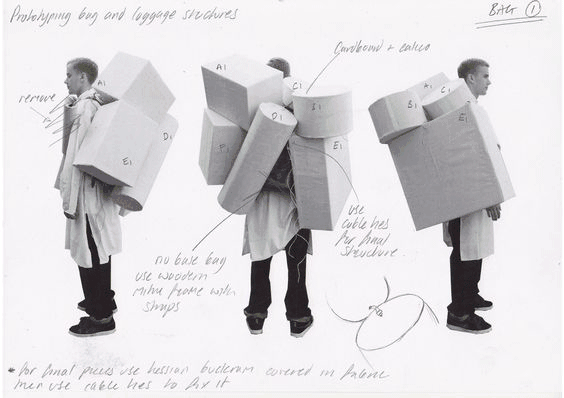 Prototyping bag and luggage structures
BAG 1
Cardboard + calico
remove
A1
D1
E1
A1
C1
B1
D1
F1
E1
A1
B1
C1
E1
use
cable ties
for final
structure.
no base bag
use wooden
frame with
straps
* for final pieces use hessian buckram covered in fabric
then use cable ties to fix it